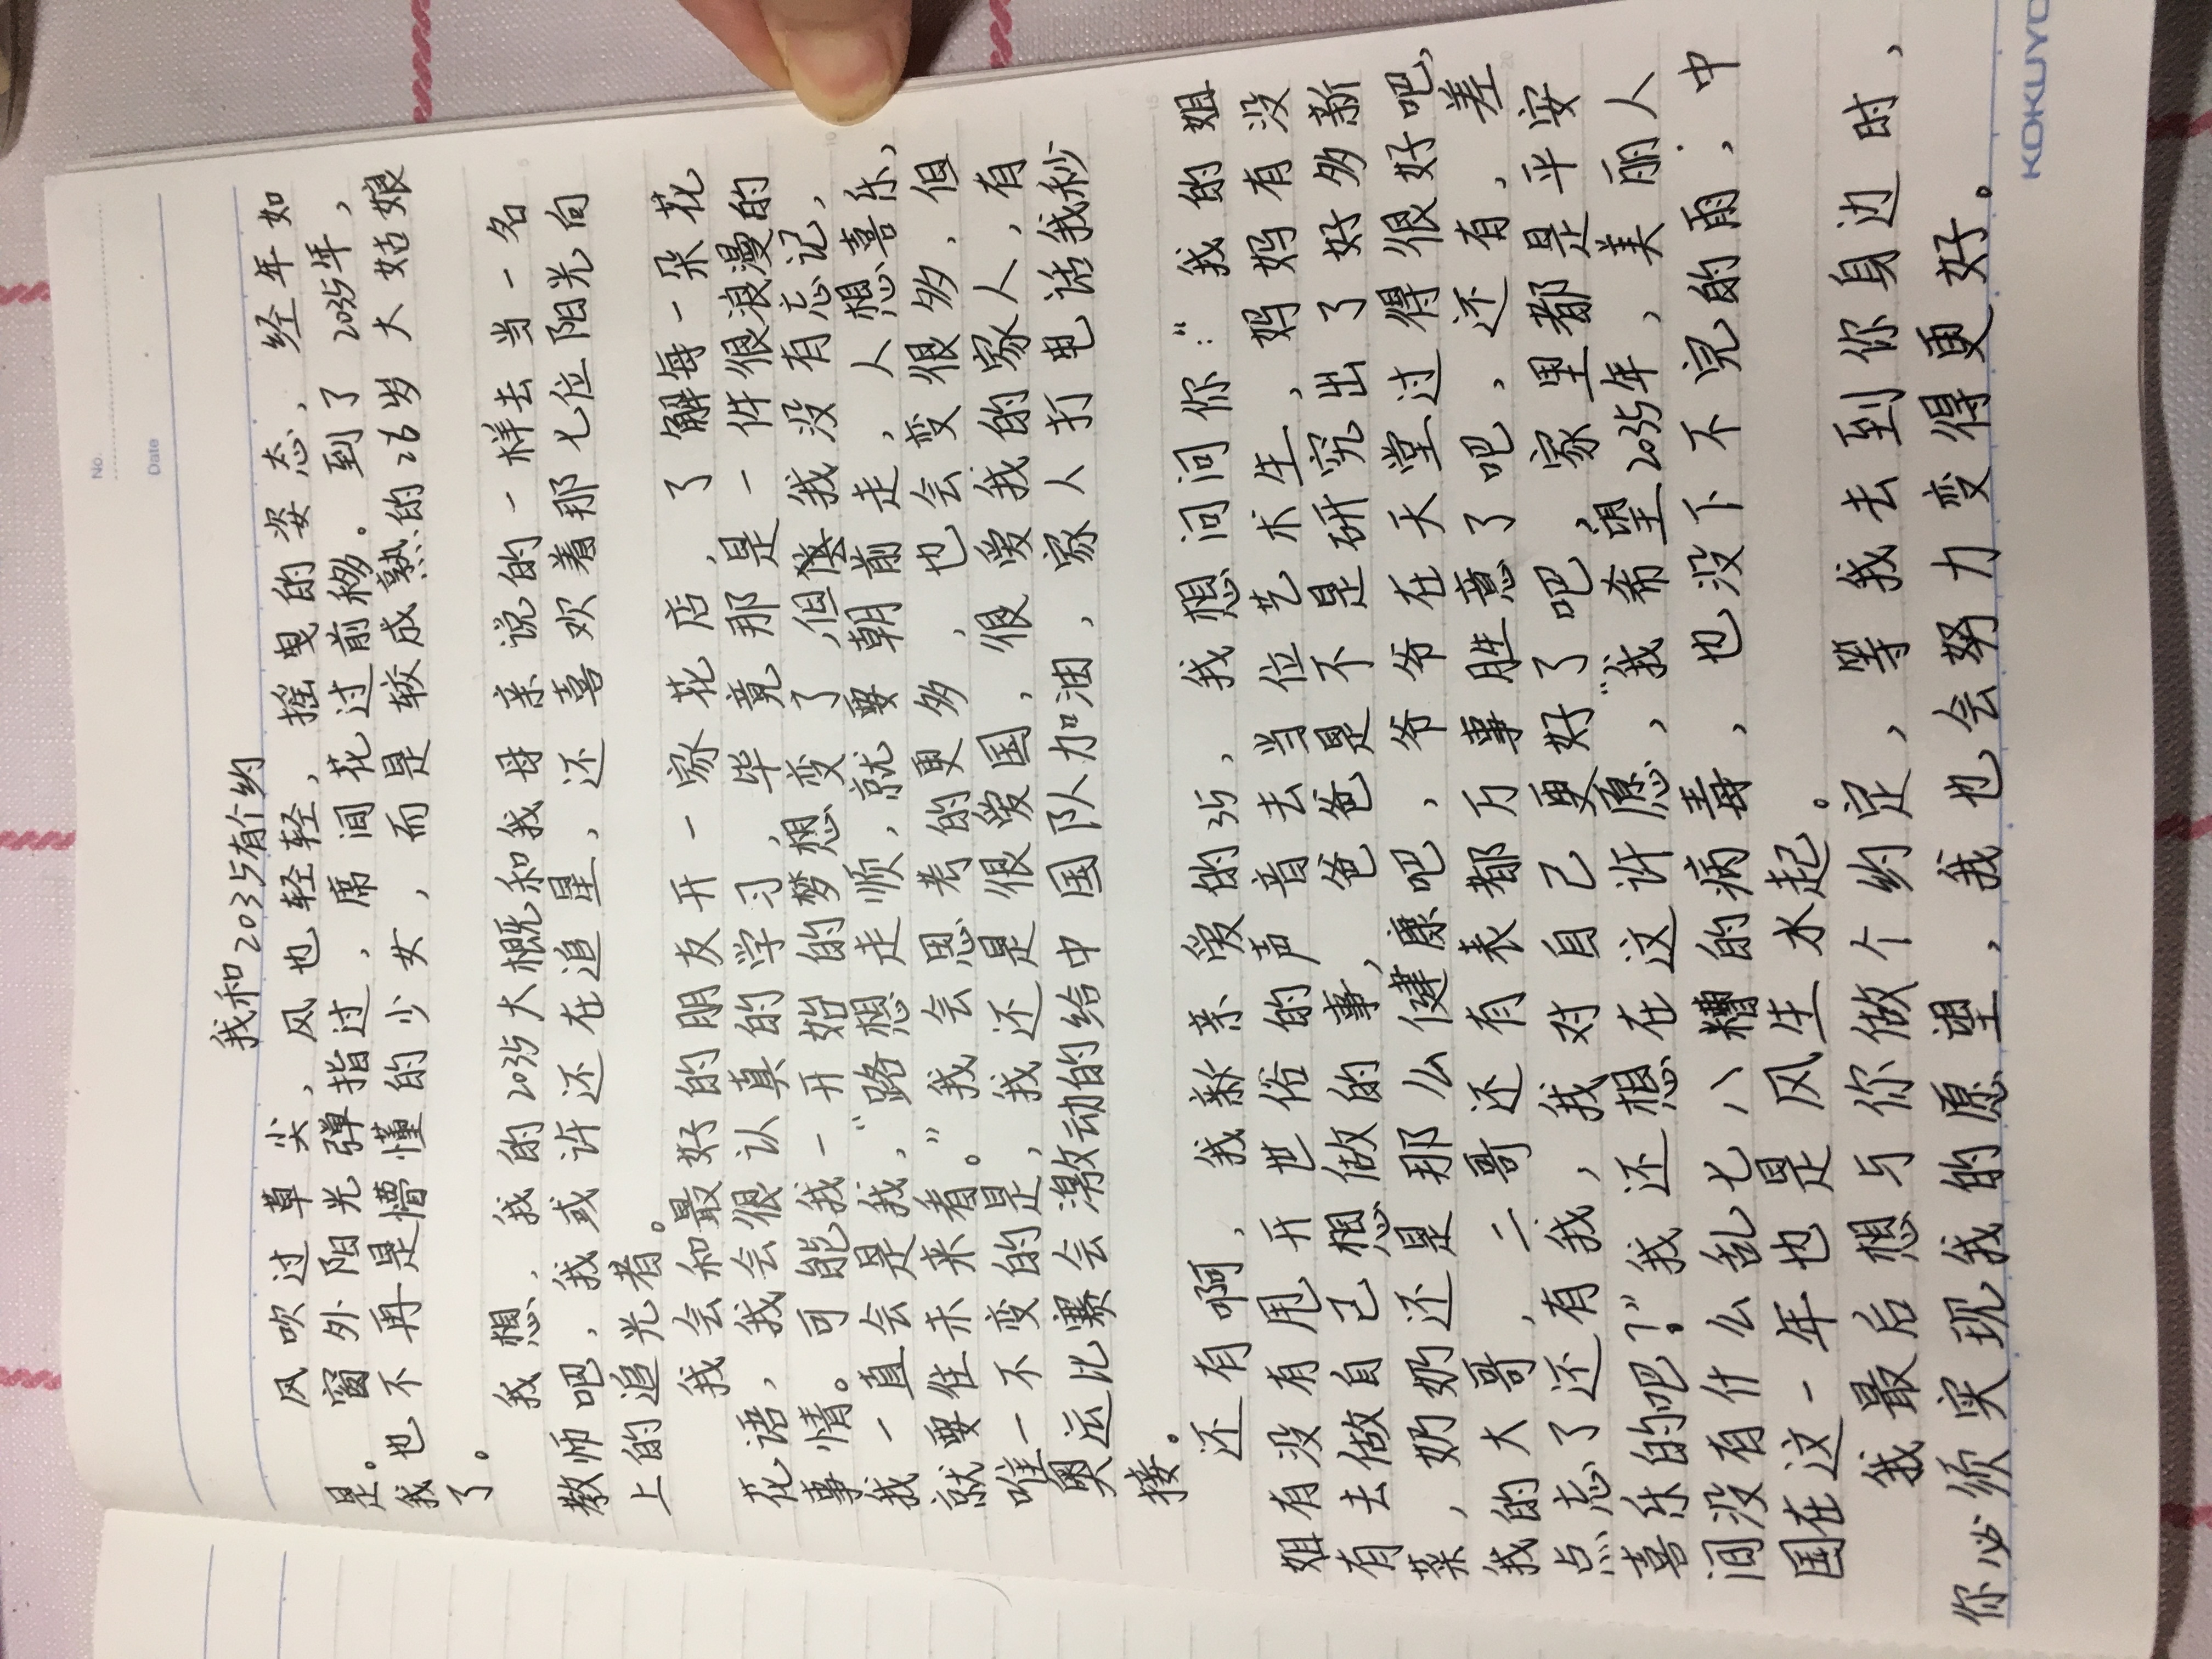 No.
Date
我和2035有个约
风吹过草尖，风也轻轻，摇曳的姿态，经年如
是。窗外阳光弹指过，席间花过前移。到了2035年，
我也不再是懵懂的少女，而是较成熟的26岁大姑娘
了。
我想，我的2035大概和我母亲说的一样去当一名
教师吧，我或许还在追星，还喜欢着那七位阳光向
上的追光者。
我会和最好的朋友开一家花店，了解每一朵花
花语，我会很认真的学习，毕竟那是一件很浪漫的
事情。可能我一开始的梦想变了但我没有忘记，
我一直会是我，“路想走顺，就要朝前走，人想喜乐，
就要往未来看。”我会思考的更多，也会变很多，但
唯一不变的是，我还是很爱国，很爱我的家人，有
奥运比赛会激动的给中国队加油，家人打电话我秒
接。
还有啊，我亲亲爱的35，我想问问你：“我的姐
姐有没有甩开世俗的声音去当位艺术生，妈妈有没
有去做自己想做的事，爸爸是不是研究出了好多新
菜，奶奶还是那么健康吧，爷爷在天堂过得很好吧，
我的大哥，二哥还有表都万事胜意了吧，还有，差
点忘了还有我，我对自己更好了吧，家里都是平安
喜乐的吧？”我还想在这许愿，“我希望2035年，美丽人
间没有什么乱七八糟的病毒，也没下不完的雨，中
国在这一年也是风生水起。
我最后想与你做个约定，等我去到你身边时，
你必须实现我的愿望，我也会努力变得更好。
KOKUYO